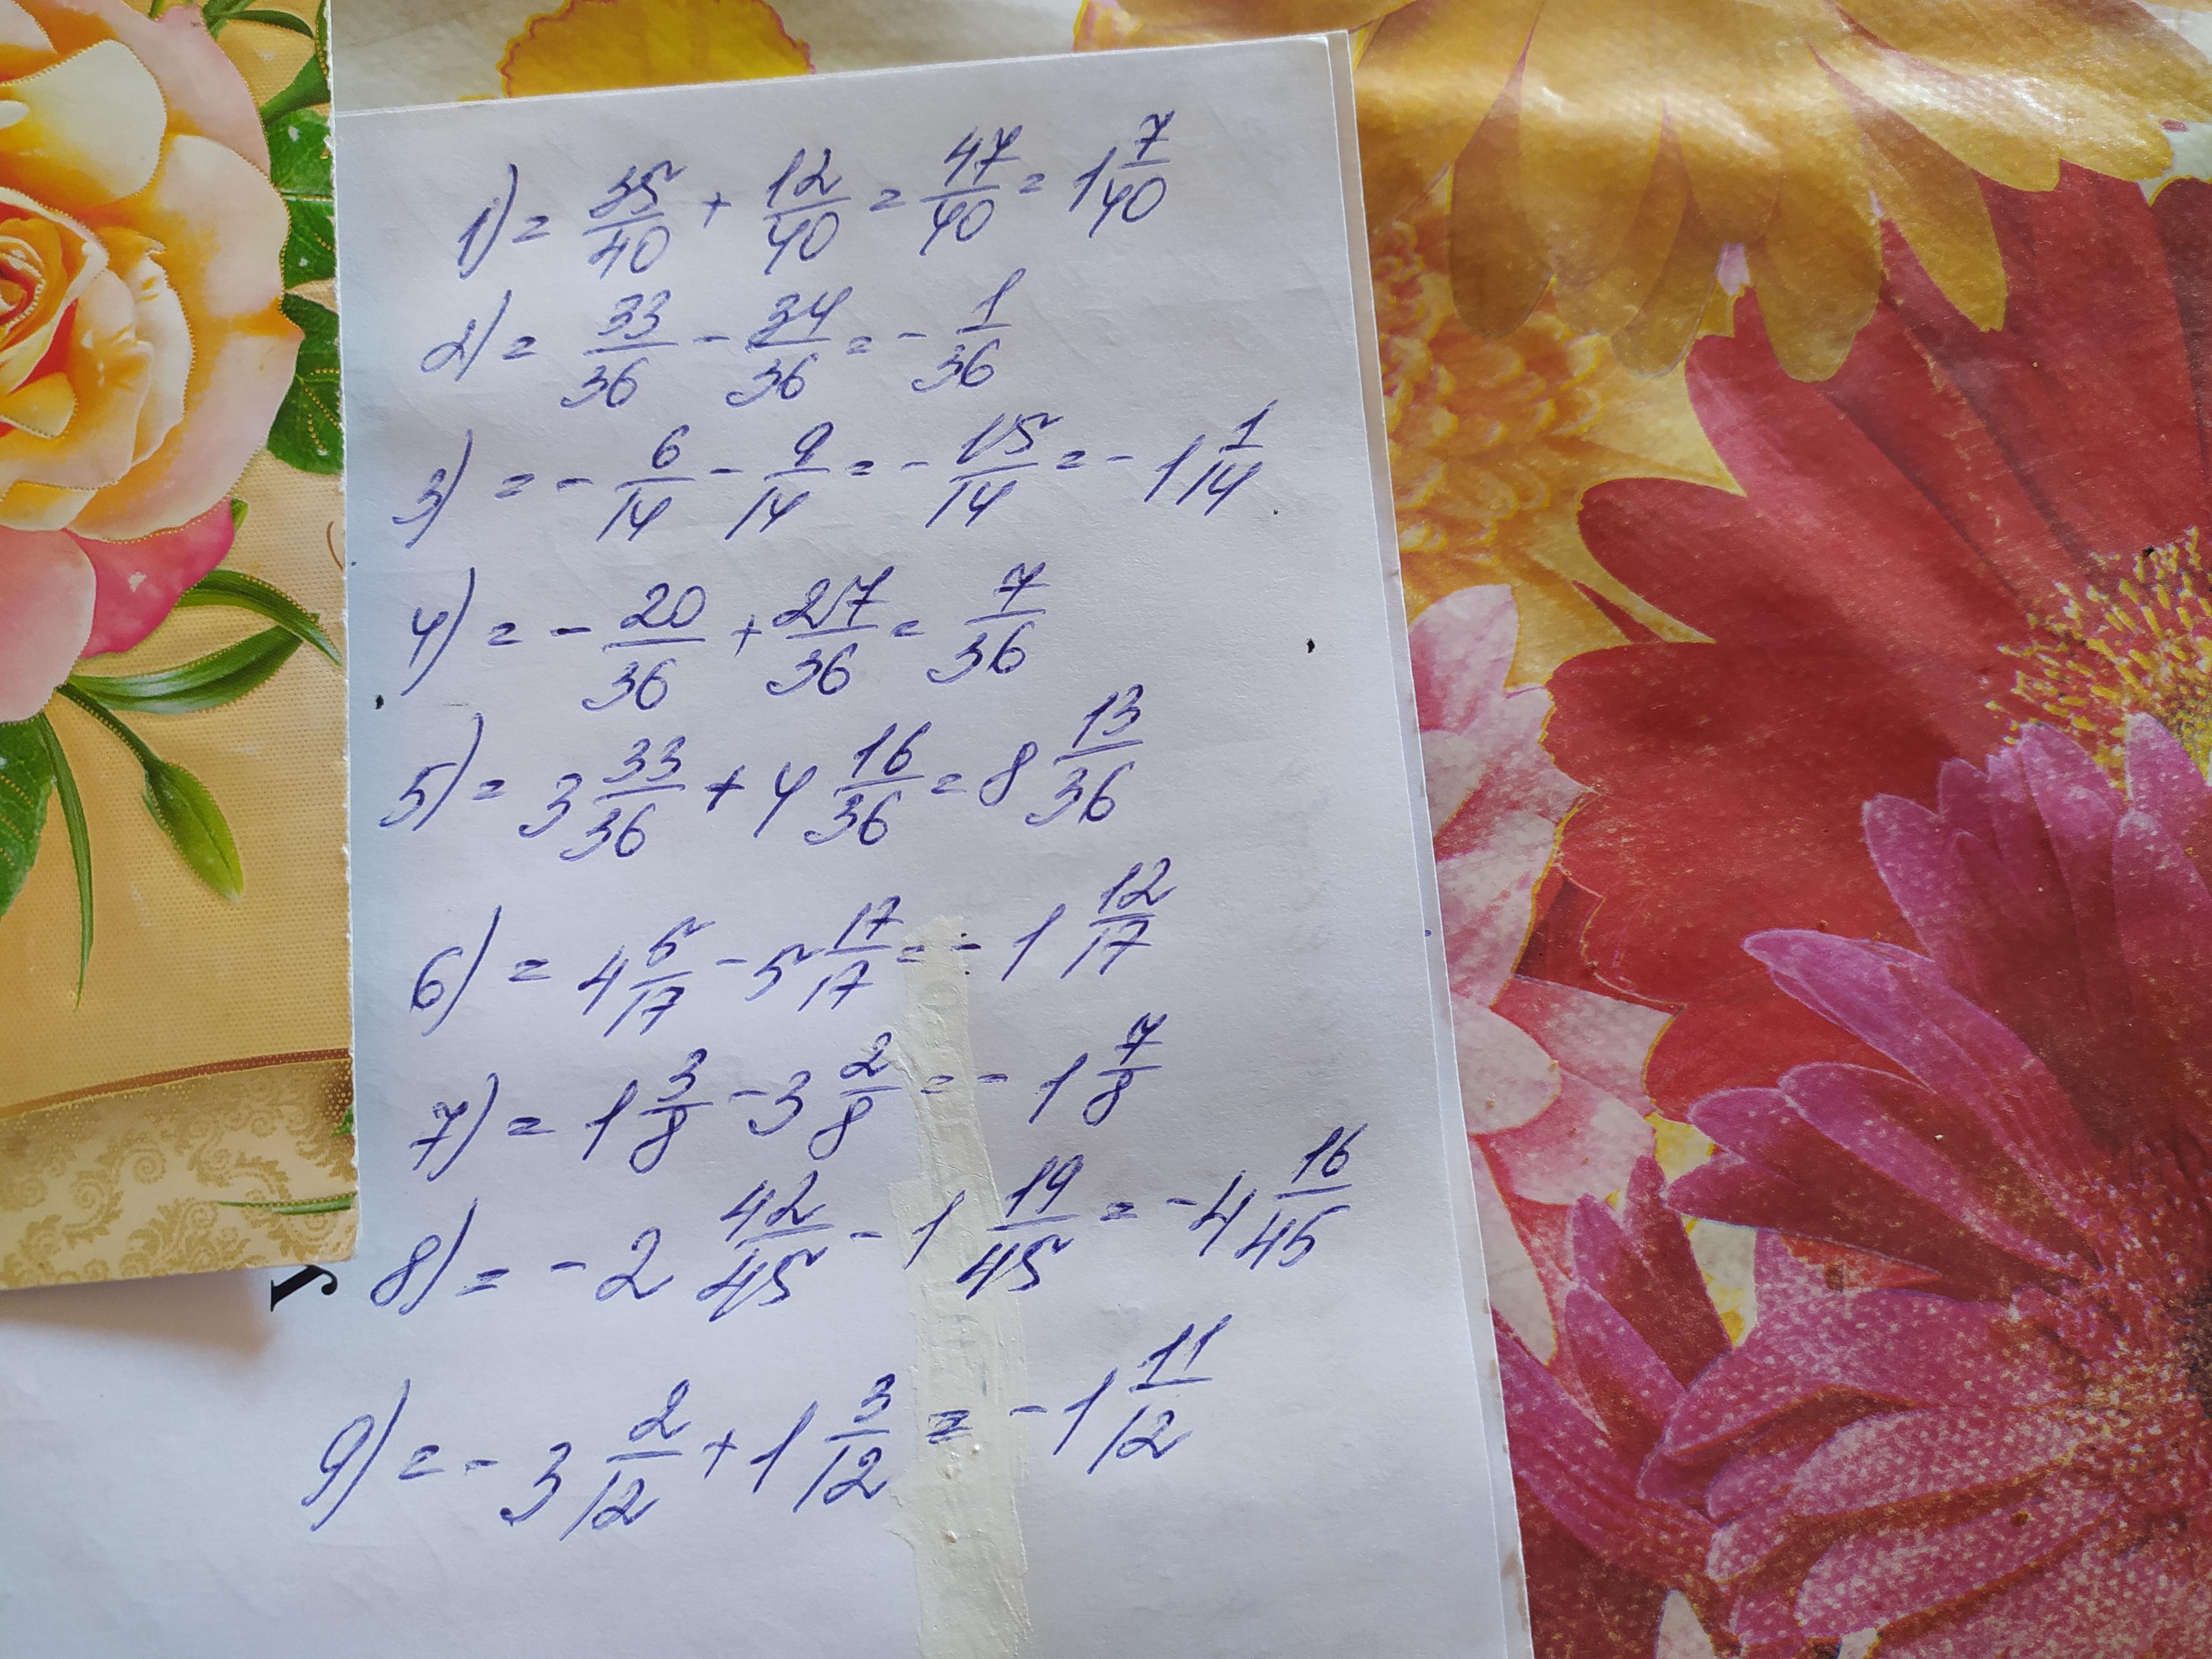 1) = 35/40 + 12/40 = 47/40 = 1 7/40
2) = 33/36 - 34/36 = - 1/36
3) = - 6/14 - 9/14 = - 15/14 = - 1 1/14
4) = - 20/36 + 27/36 = 7/36
5) = 3 33/36 + 4 16/36 = 8 13/36
6) = 4 5/17 - 5 17/17 = - 1 12/17
7) = 1 3/8 - 3 2/8 = - 1 7/8
8) = - 2 42/45 - 1 19/45 = - 4 16/45
9) = - 3 2/12 + 1 3/12 = - 1 11/12